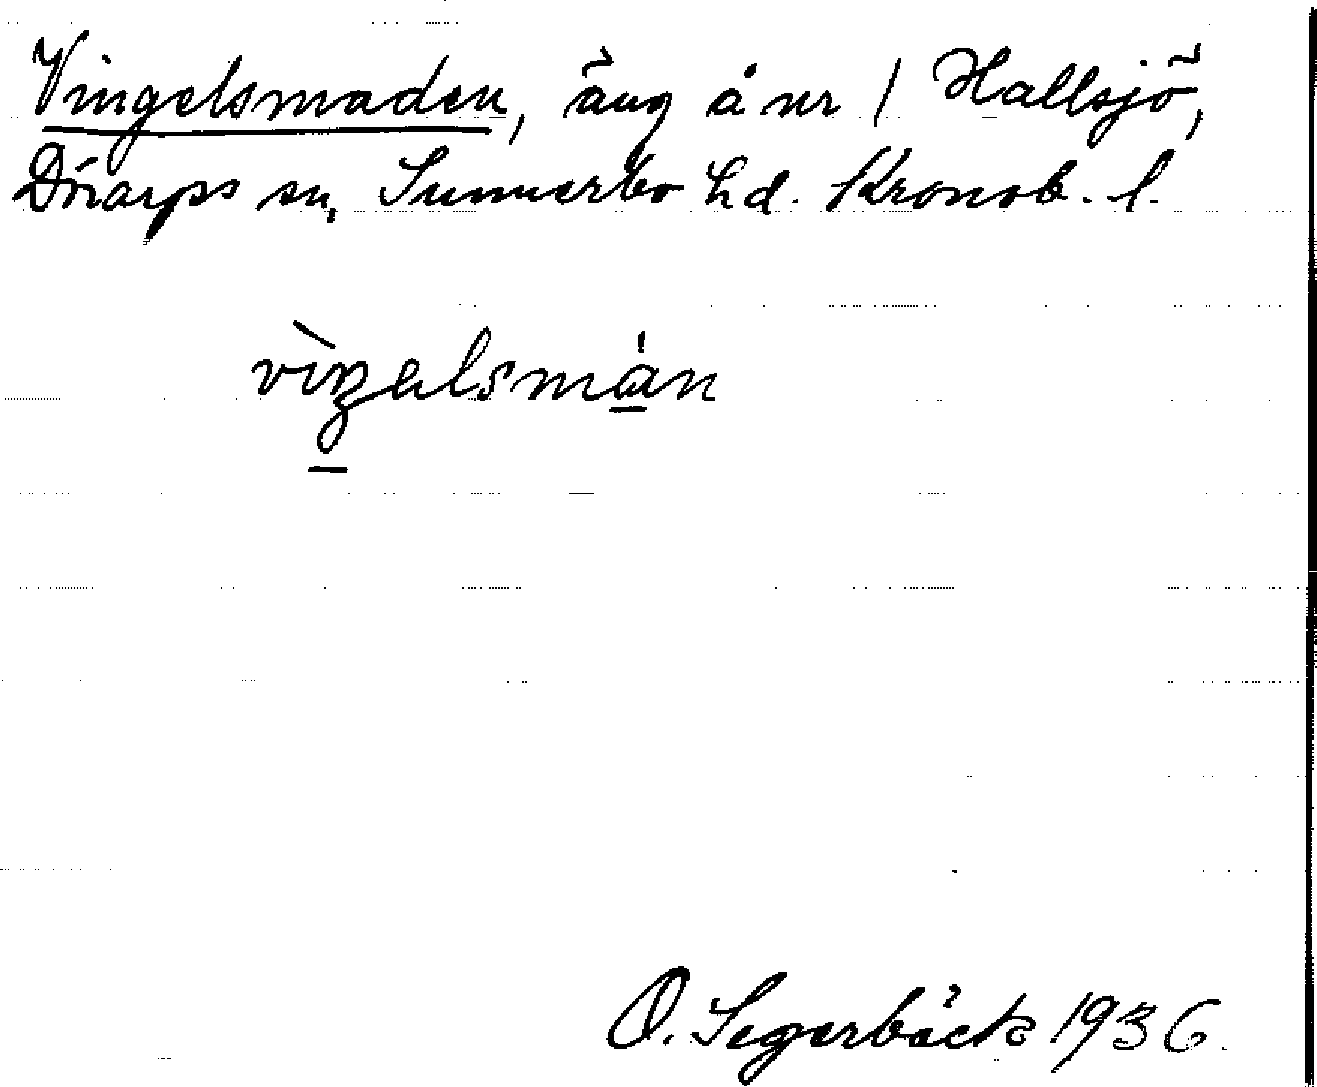 Vingelsmaden, äng å nr 1 Hallsjö,
Dörarps sn, Sunnerbo hd. Kronob. l.
vìŋelsmȧn
O. Segerbäck 1936.